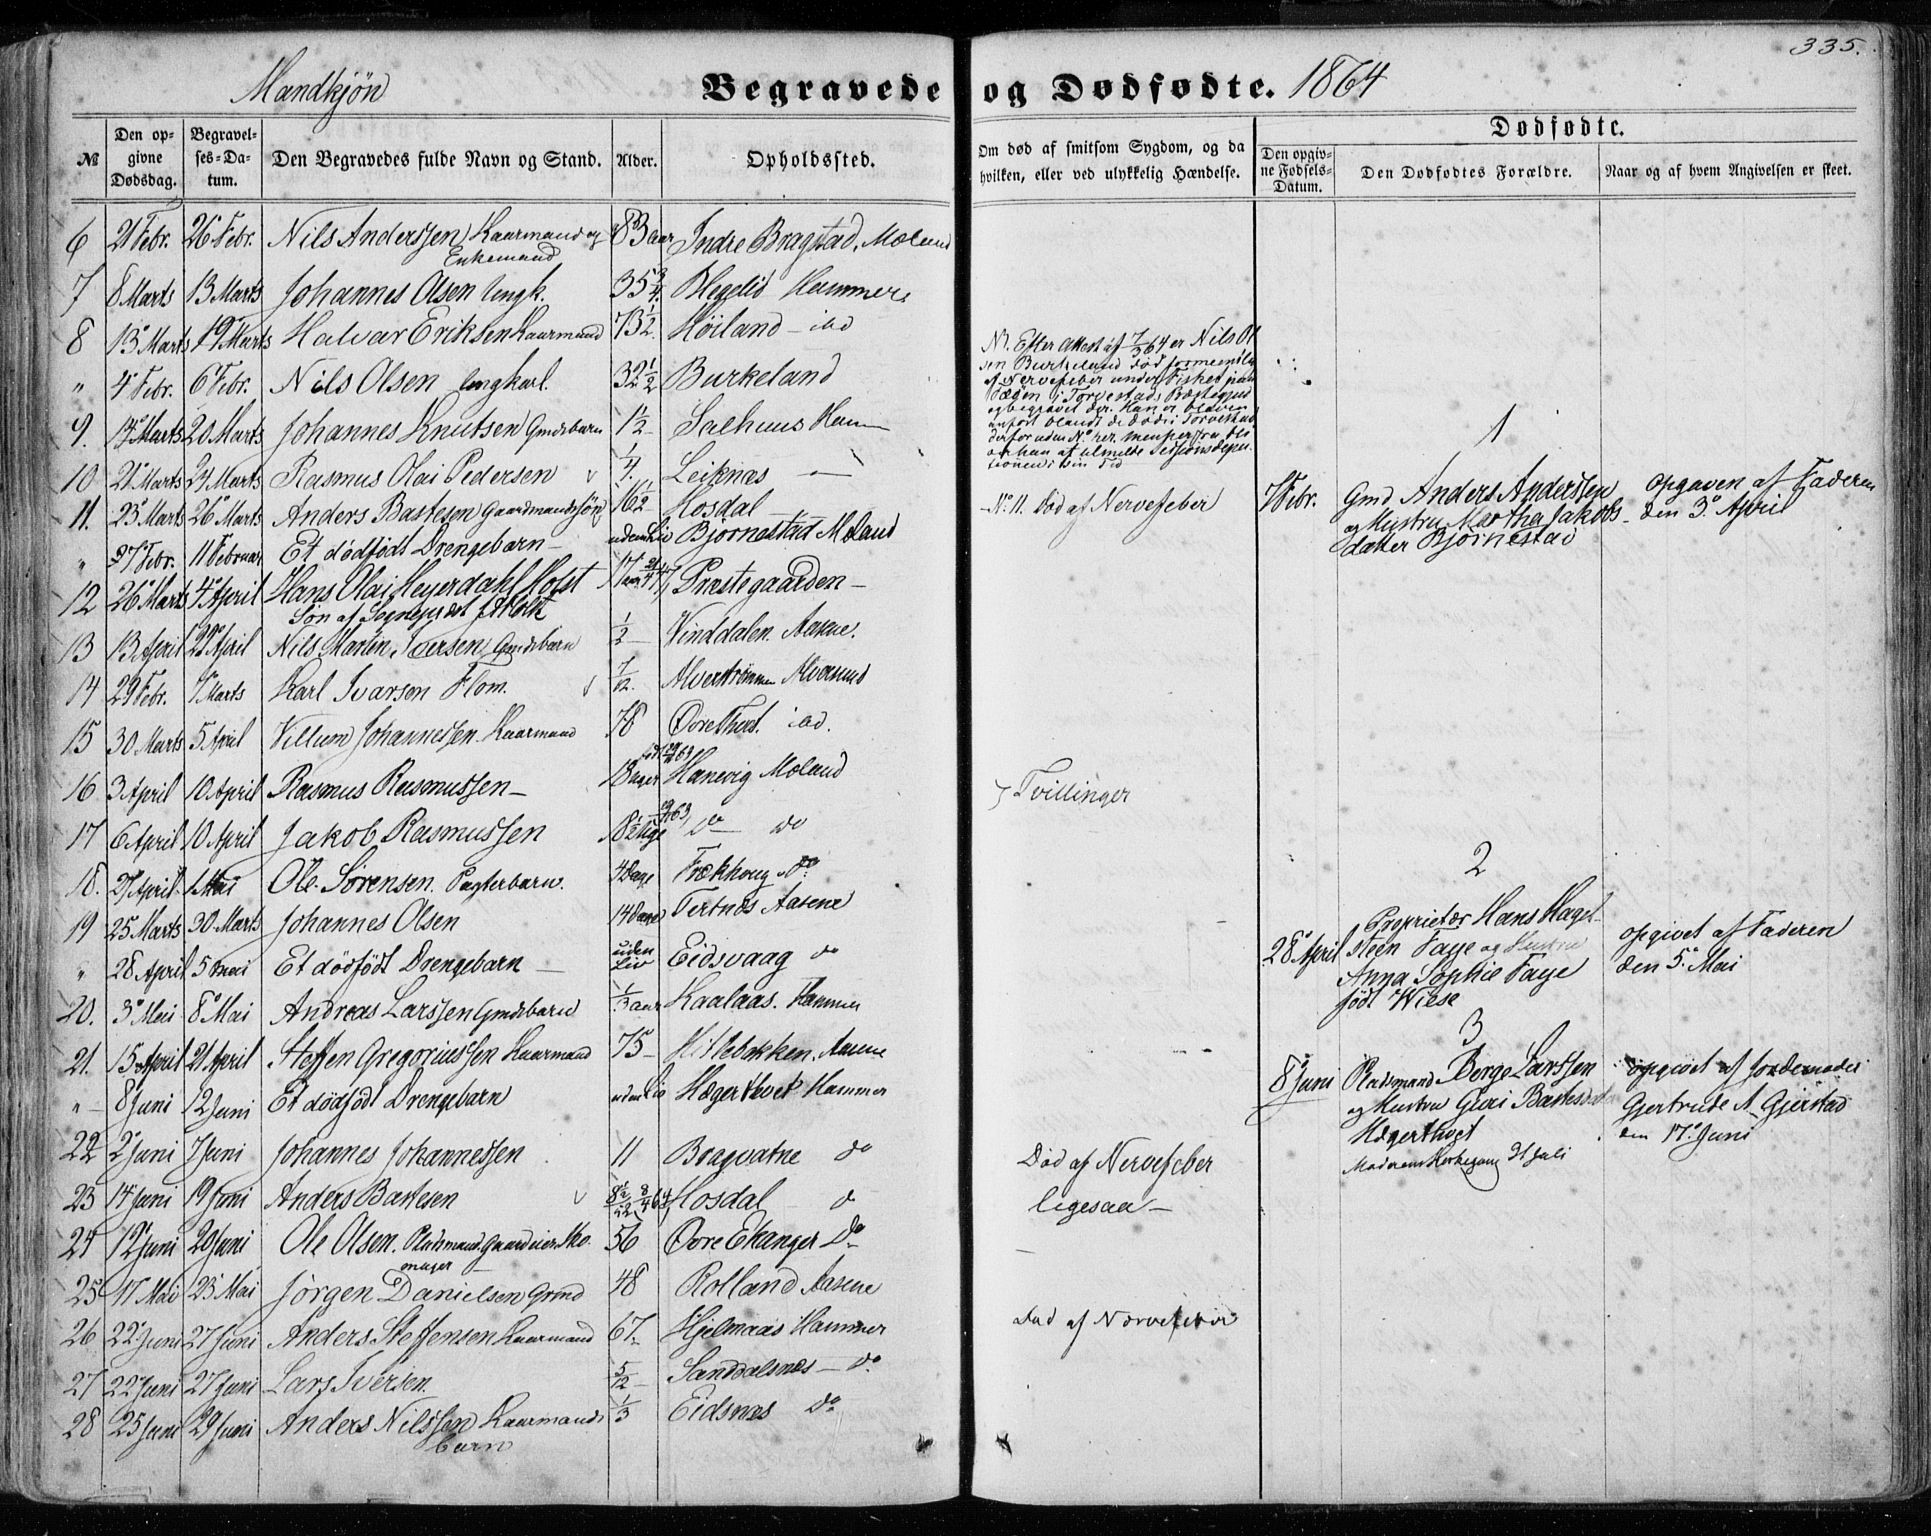 335.
Mandkjøn Begravede og Dødfødte. 1864
№ Den opgivne Dødsdag. Begravelses-Datum. Den Begravedes fulde Navn og Stand. Alder. Opholdssted. Om død af smitsom Sygdom, og da hvilken, eller ved ulykkelig Hændelse.
Dødfødte.
Den opgivne Fødsels-Datum. Den Dødfødtes Forældre. Naar og af hvem Angivelsen er skeet.
6 21 Febr. 26 Febr. Nils Anderssen Kaarmand og 83 aar Indre Bragstad, Mæland
Enkemand
7 8 Marts 13 Marts Johannes Olsen Ungk. 35 3/4 Hammer
8 13 Marts 19 Marts Halvar Eriksen Kaarmand 73 1/2 Høiland - ibd
" 4 Febr. 6 Febr. Nils Olsen Ungkarl. 32 1/2 Burkeland
Nb. Efter Attest af 7/3 64 er Nils Ol
sen Burkeland død formeentlig
af Nervefeber under Fisket paa
i Torvestads Præstegjeld
og begravet der. Han er bleven
anført blandt de Døde i Torvestad
derfor uden No her,
9. 14 Marts 20 Marts Johannes Knutsen Gmdsbarn 1 1/2 Salhuus Ham
10 21 Marts 24 Marts Rasmus Olai Pedersen 1/4. Leiknæs —
11. 23 Marts 26 Marts Anders Bastesen Gaardmandssøn 16 1/2 Hosdal — No. 11. Død af Nervefeber
" 27 Febr. 11 Februar Et dødfødt Drengebarn — uden Liv Bjørnestad Mæland
1
7 Febr. Gmd Anders Anderssen
og Hustru Martha Jakobs-
datter Bjørnestad
Opgaven af Faderen
den 3. April
12 26 Marts 4 April Hans Olai Heyerdahl Holst 17 Præstegaarden —
Søn af Sognepræst Holst
13 13 April 22 April Nils Martin Iversen Gmdsbarn 1/2 Vinddalen. Aasene.
14 29 Febr. 7 Marts Karl Ivarsen Flom. 7/12. Alverstrømmen Alversund
15 30 Marts 5 April Villum Johannessen Kaarmand 78 ibd.
16 3 April 10 April Rasmus Rasmussen — 18 uger Hanevig Mæland
} Tvillinger
17 6 April 10 April Jakob Rasmussen 18 1/2 Uge do do
18. 27 April 1 Mai Ole Sørensen. Pagterbarn. 4 Dage Frækhoug do.
19 25 Marts 30 Marts Johannes Olsen 14 Dage Tertnæs Aasene
" 28 April 5 Mai Et dødfødt Drengebarn — uden Liv Eidsvaag do
2
28 April Proprietær Hans Haget-
steen Faye og Hustru
Anna Sophie Faye
født Wiese
opgivet af Faderen
den 5. Mai
20. 3 Mai 8 Mai Andreas Larssen Gmdsbarn 1/3 aar Kaalaas. Hammer
21. 15 April 21 April Steffen Gregoriussen Kaarmand 75 — Hillebakken. Aasene
" — 8 Juni 12 Juni Et dødfødt Drengebarn uden Liv Hægertvet Hammer
3
8 Juni Pladsmand Berge Larssen
og Hustru Guri Bastesdatter
Hægertvet
Moderens Kirkegang 31 Juli
opgivet af Jordemoder
Gjertrude A. Gjerstad
den 17. Juni
22 2 Juni 7 Juni Johannes Johannessen 11 Bragvatne do Død af Nervefeber
23 14 Juni 19 Juni Anders Bastesen 8 1/2 Hosdal do ligesaa —
24 12 Juni 20 Juni Ole Olsen. Pladsmand, Gaardeier, Sko- 56 Øvre Ekanger do
mager
25 17 Mai 23 Mai Jørgen Danielsen Gmd 48 Rolland Aasene
26 22 Juni 27 Juni Anders Steffensen Kaarmand 67 Hjelmaas Hammer Død af Nervefeber
27 22 Juni 27 Juni Lars Iversen. 5/12 Sanddalsnæs — do
28 25 Juni 29 Juni Anders Nilssen Kaarmands 1/3 Eidsnæs do
barn